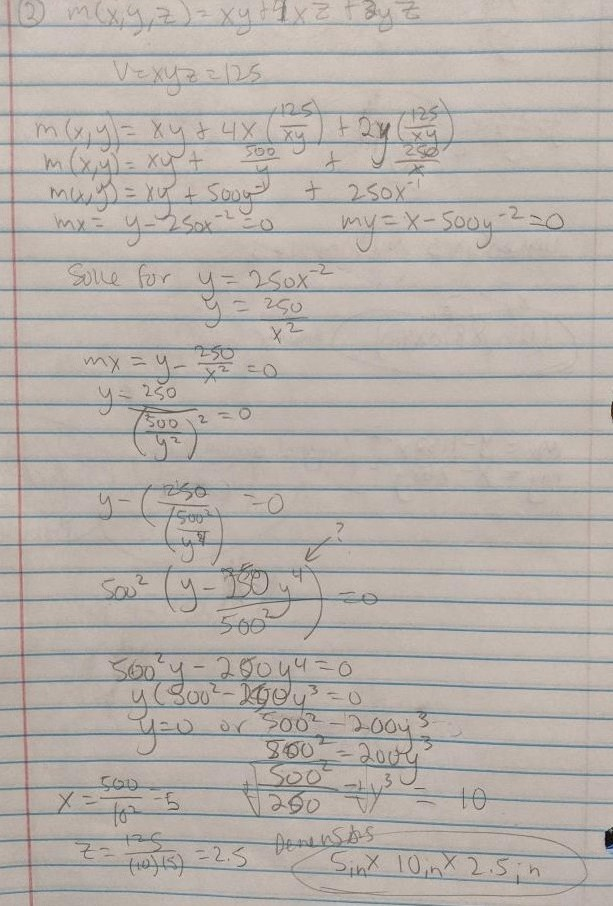 ② m(x,y,z) = xy + 4xz + 2yz
V = xyz = 125
m(x,y) = xy + 4x (125/xy) + 2y (125/xy)
m(x,y) = xy + 500/y + 250/x
m(x,y) = xy + 500y⁻¹ + 250x⁻¹
mx = y - 250x⁻² = 0 my = x - 500y⁻² = 0
Solve for y = 250x⁻²
y = 250/x²
mx = y - 250/x² = 0
y = 250/(500/y²)² = 0
y - (250/(500²/y⁴)) = 0
?
500² (y - 250y⁴/500²) = 0
500²y - 250y⁴ = 0
y(500² - 250y³ = 0
y = 0 or 500² - 200y³
500² = 200y³
x = 500/10² = 5 √500²/250 = √y³ = 10
z = 125/(10)(5) = 2.5
5in x 10in x 2.5in